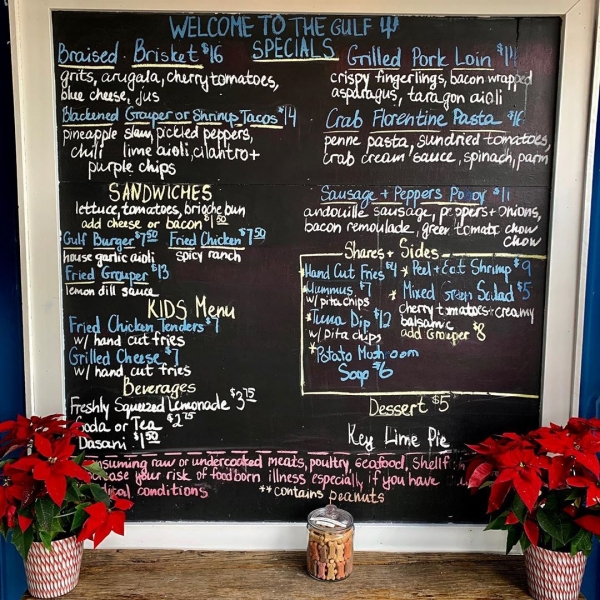 WELCOME TO THE GULF
SPECIALS
Braised Brisket $16
grits, arugala, cherry tomatoes,
blue cheese, jus
Blackened Grouper or Shrimp Tacos $14
pineapple slaw, pickled peppers,
chili lime aioli, cilantro +
purple chips
Grilled Pork Loin
crispy fingerlings, bacon wrapped
asparagus, taragon aioli
Crab Florentine Pasta $16
penne pasta, sundried tomatoes,
crab cream sauce, spinach, parm
SANDWICHES
lettuce, tomatoes, brioche bun
add cheese or bacon $1.50
Gulf Burger $7.50 Fried Chicken $7.50
house garlic aioli spicy ranch
Fried Grouper $13
lemon dill sauce
Sausage + Peppers Poboy
andouille sausage, peppers + onions,
bacon remoulade, green tomato chow
chow
KIDS Menu
Fried Chicken Tenders $7
w/ hand cut fries
Grilled Cheese $7
w/ hand cut fries
Beverages
Freshly Squeezed Lemonade $3.75
Soda or Tea $2.75
Dasani $1.50
Shares + Sides
Hand Cut Fries $4
Hummus $7
w/ pita chips
*Tuna Dip $12
w/ pita chips
*Potato Mushroom
Soup $6
* Peel + Eat Shrimp $9
* Mixed Green Salad $5
cherry tomatoes + creamy
balsamic
add Grouper $8
Dessert $5
Key Lime Pie
consuming raw or undercooked meats, poultry, seafood, shellfish
increase your risk of foodborn illness especially if you have
conditions
** contains peanuts